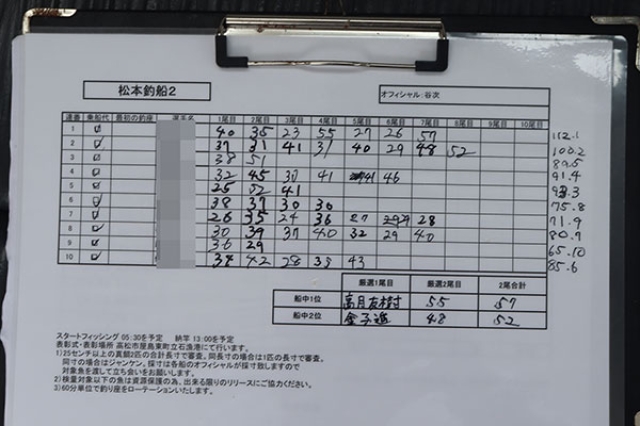 松本釣船2
オフィシャル:谷次
連番 乗船代 最初の釣座 選手名 1尾目 2尾目 3尾目 4尾目 5尾目 6尾目 7尾目 8尾目 9尾目 10尾目
1 40 35 23 55 27 26 57 112.1
2 37 31 41 31 40 29 48 52 100.2
3 38 51 89.5
4 32 45 30 41 41 46 91.4
5 25 52 41 93.3
6 38 37 30 30 75.8
7 26 35 24 36 27 29 28 71.9
8 30 39 37 40 32 29 40 80.7
9 36 29 65.10
10 34 42 28 33 43 85.6
厳選1尾目 厳選2尾目 2尾合計
船中1位 高月友樹 55 57
船中2位 金子 48 52
スタートフィッシング 05:30を予定 納竿 13:00を予定
表彰式・表彰場所 高松市屋島東町立石漁港にて行います。
1)25センチ以上の真鯛2匹の合計長寸で審査。同長寸の場合は1匹の長寸で審査。
同寸の場合はジャンケン。採寸は各船のオフィシャルが採寸致しますので
対象魚を渡して立ち会いをお願いします。
2)検量対象以下の魚は資源保護の為、出来る限りのリリースにご協力ください。
3)60分単位で釣り座をローテーションいたします。